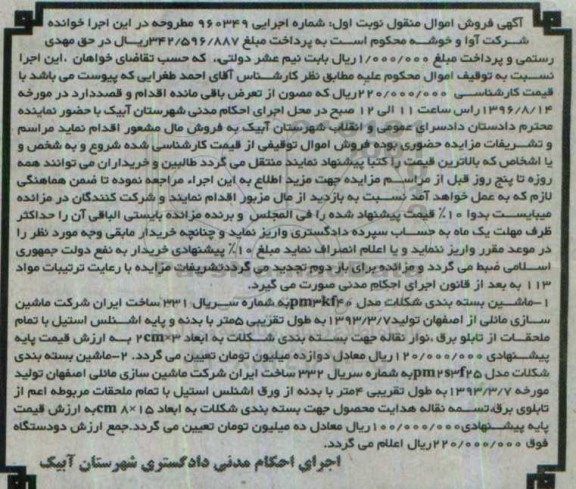 آگهی فروش اموال منقول نوبت اول: شماره اجرایی ۹۶۰۳۴۹ مطروحه در این اجرا خوانده
شرکت آوا و خوشه محکوم است به پرداخت مبلغ ۳۴۲/۵۹۶/۸۸۷ریال در حق مهدی
رستمی و پرداخت مبلغ ۱/۰۰۰/۰۰۰ریال بابت نیم عشر دولتی، که حسب تقاضای خواهان ،این اجرا
نسبت به توقیف اموال محکوم علیه مطابق نظر کارشناس آقای احمد طغرایی که پیوست می باشد با
قیمت کارشناسی ۲۲۰/۰۰۰/۰۰۰ریال که مصون از تعرض باقی مانده اقدام و قصددارد در مورخه
۱۳۹۶/۸/۱۴راس ساعت ۱۱ الی ۱۲ صبح در محل اجرای احکام مدنی شهرستان آبیک با حضور نماینده
محترم دادستان دادسرای عمومی و انقلاب شهرستان آبیک به فروش مال مشعور اقدام نماید مراسم
و تشریفات مزایده حضوری بوده فروش اموال توقیفی از قیمت کارشناسی شده شروع و به شخص و
یا اشخاص که بالاترین قیمت را کتبا پیشنهاد نمایند منتقل می گردد طالبین و خریداران می توانند همه
روزه تا پنج روز قبل از مراسم مزایده جهت مزید اطلاع به این اجراء مراجعه نموده تا ضمن هماهنگی
لازم که به عمل خواهد آمد نسبت به بازدید از مال مزبور اقدام نمایند و شرکت کنندگان در مزائده
میبایست بدوا ۱۰٪ قیمت پیشنهاد شده را فی المجلس و برنده مزائده بایستی الباقی آن را حداکثر
ظرف مهلت یک ماه به حساب سپرده دادگستری واریز نماید و چنانچه خریدار مابقی وجه مورد نظر را
در موعد مقرر واریز ننماید و یا اعلام انصراف نماید مبلغ ۱۰٪ پیشنهادی خریدار به نفع دولت جمهوری
اسلامی ضبط می گردد و مزائده برای بار دوم تجدید می گرددتشریفات مزایده با رعایت ترتیبات مواد
۱۱۳ به بعد از قانون اجرای احکام مدنی صورت می گیرد.
۱-ماشین بسته بندی شکلات مدل pm۳kf۴۰به شماره سریال ۳۳۱ ساخت ایران شرکت ماشین
سازی مائلی از اصفهان تولید۱۳۹۳/۳/۷به طول تقریبی ۵متر با بدنه و پایه اشنلس استیل با تمام
ملحقات از تابلو برق ،نوار نقاله جهت بسته بندی شکلات به ابعاد ۲cm×۳ به ارزش قیمت پایه
پیشنهادی ۱۲۰/۰۰۰/۰۰۰ریال معادل دوازده میلیون تومان تعیین می گردد. ۲-ماشین بسته بندی
شکلات مدل pm۲۶۳f۲۵به شماره سریال ۳۳۲ ساخت ایران شرکت ماشین سازی مائلی اصفهان تولید
مورخه ۱۳۹۳/۳/۷به طول تقریبی ۴متر با بدنه از ورق اشنلس استیل با تمام ملحقات مربوطه اعم از
تابلوی برق،تسمه نقاله هدایت محصول جهت بسته بندی شکلات به ابعاد ۱۵×۸ cmبه ارزش قیمت
پایه پیشنهادی۱۰۰/۰۰۰/۰۰۰ریال معادل ده میلیون تومان تعیین می گردد.جمع ارزش دودستگاه
فوق ۲۲۰/۰۰۰/۰۰۰ریال اعلام می گردد.
اجرای احکام مدنی دادگستری شهرستان آبیک